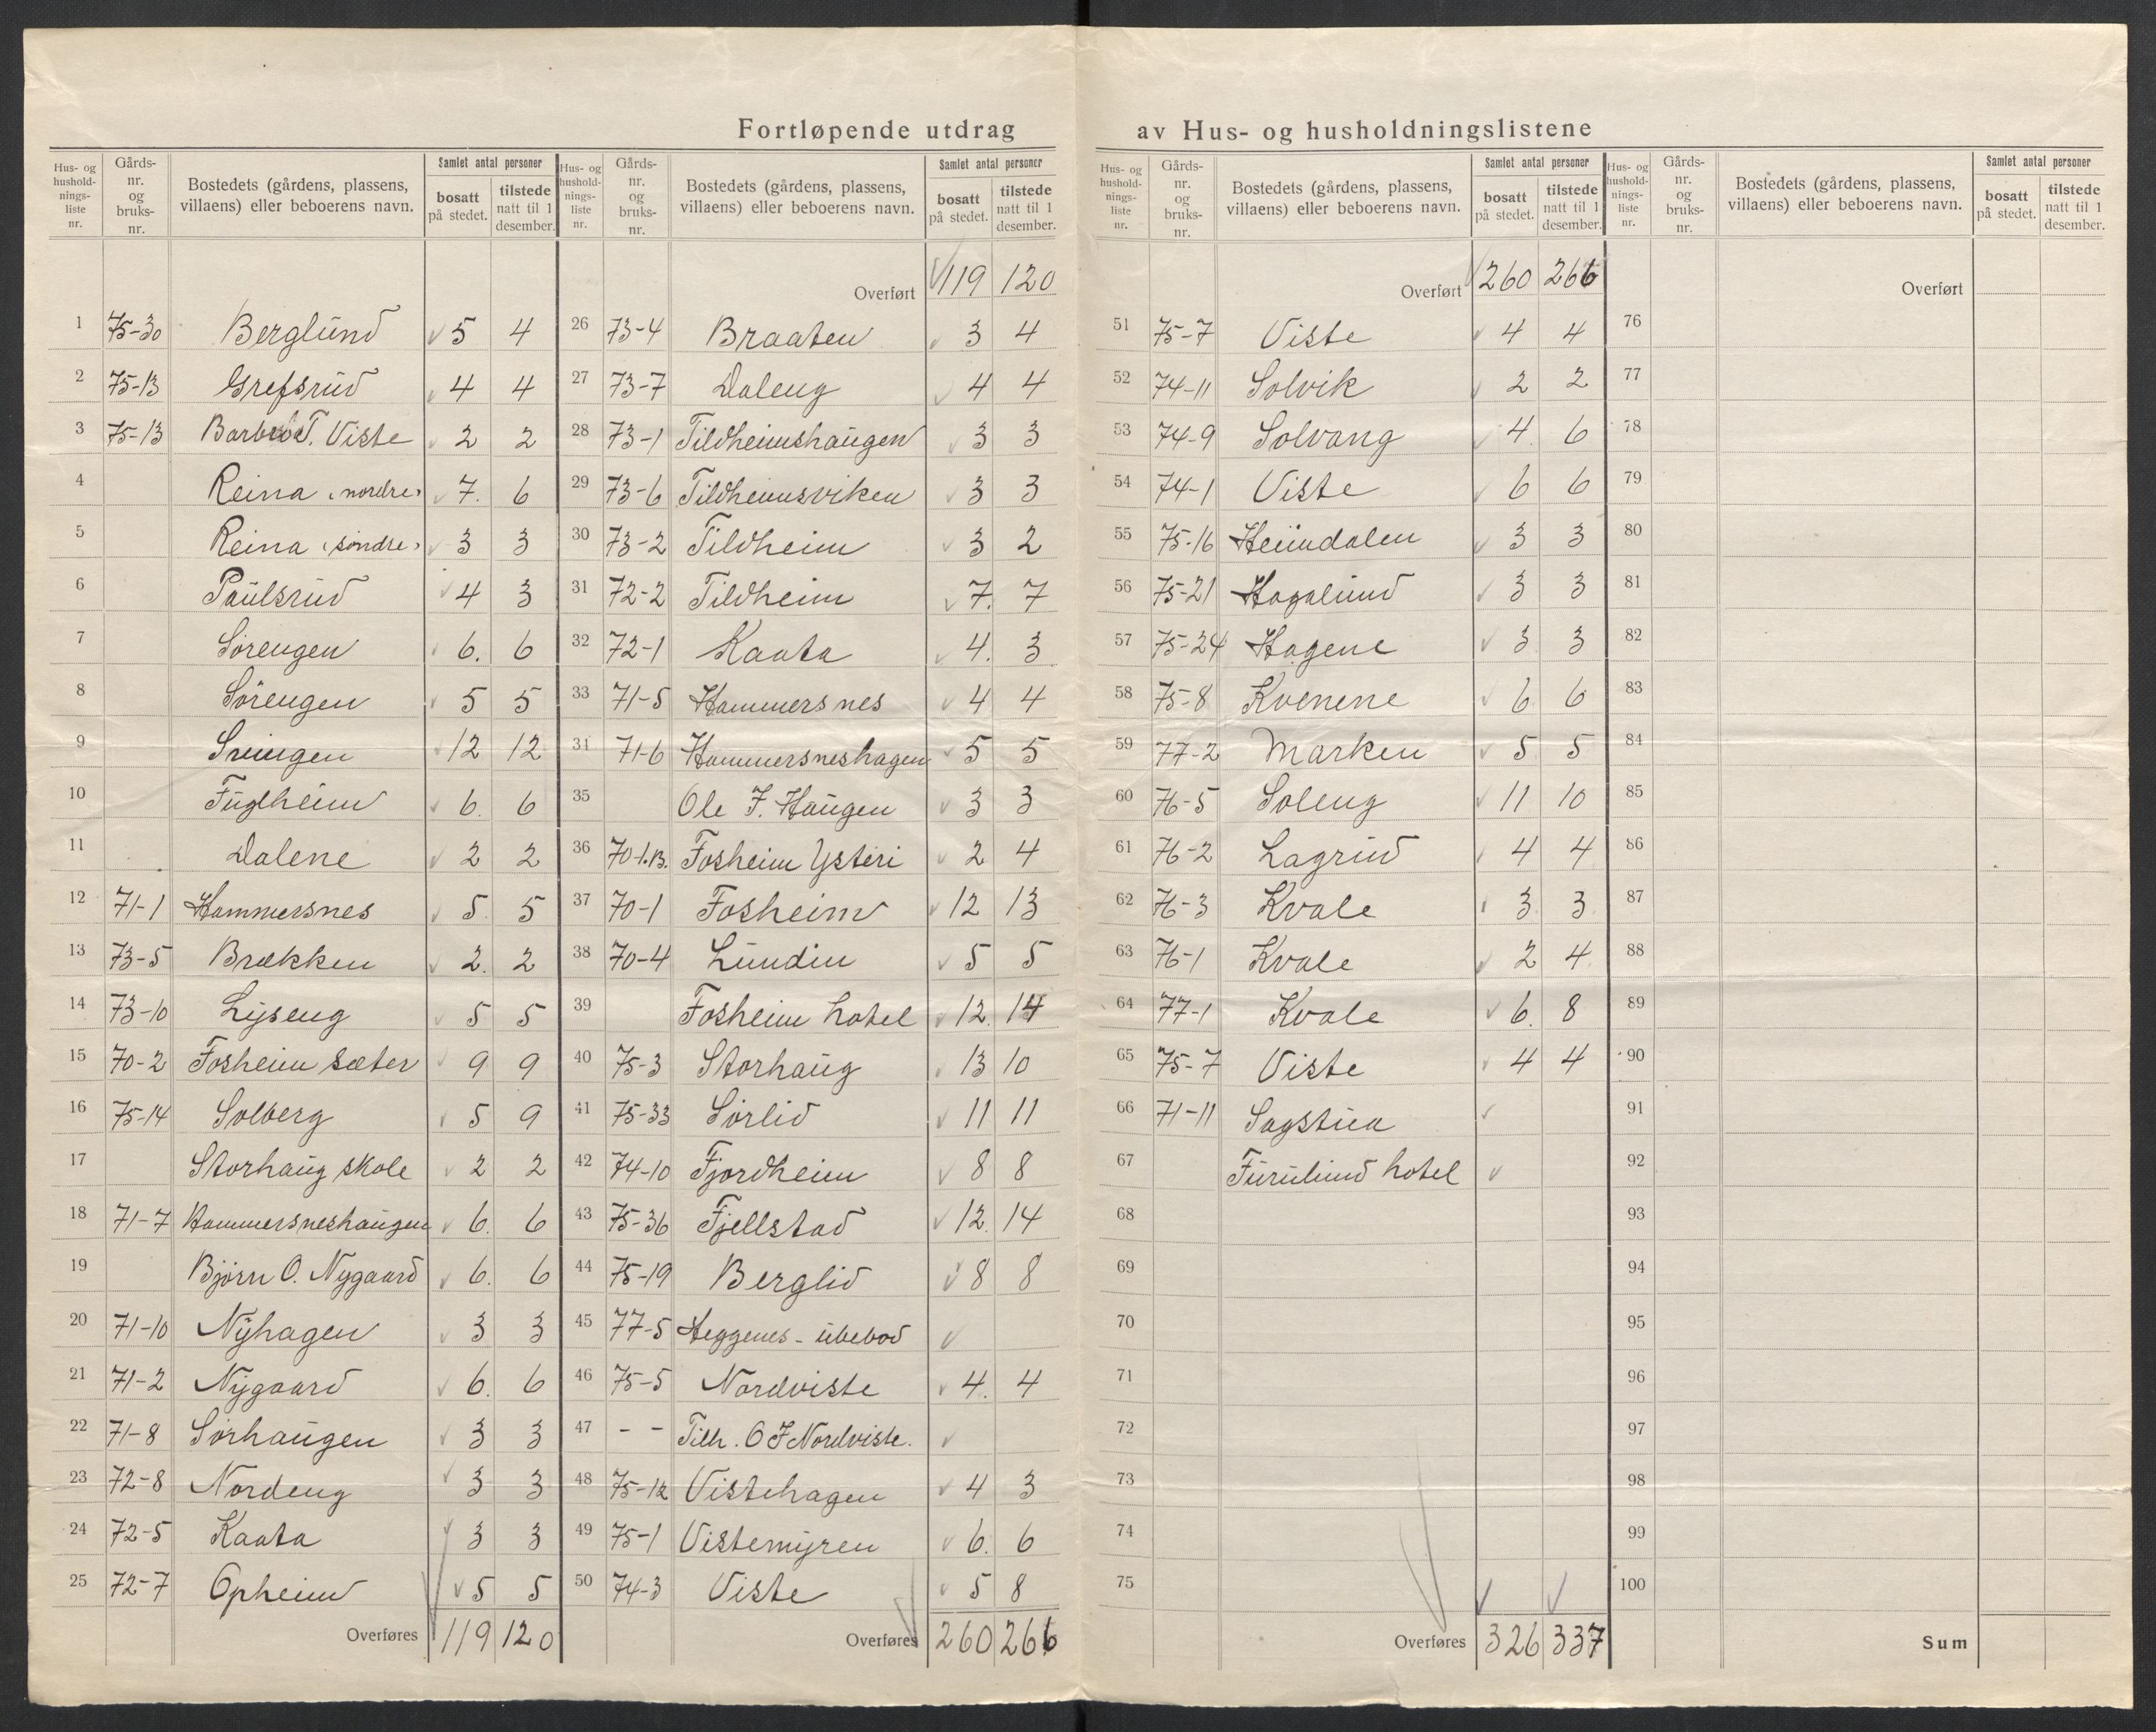 Fortløpende utdrag av Hus- og husholdningslistene
Hus- og hushold-nings-liste nr. | Gårds-nr. og bruks-nr. | Bostedets (gårdens, plassens, villaens) eller beboerens navn. | Samlet antal personer | bosatt på stedet. | tilstede natt til 1 desember.
1 75-30 Berglund 5 4
2 75-13 Grefsrud 4 4
3 75-13 Barbro T. Viste 2 2
4 Reina (nordre) 7. 6
5 Reina (søndre) 3 3
6 Paulsrud 4 3
7 Sørengen 6. 6
8 Sørengen 5 5
9 Svingen 12 12
10 Fuglheim 6. 6
11 Dalene 2 2
12 71-1 Hammersnes 5 5
13 73-5 Brækken 2. 2
14 73-10 Lyseng 5 5
15 70-2 Fosheim sæter 9 9
16 75-14 Solberg 5 9
17 Storhaug skole 2 2
18 71-7 Hammersneshaugen 6. 6
19 Bjørn O. Nygaard 6. 6
20 71-10 Nyhagen 3 3
21 71-2 Nygaard 6. 6
22 71-8 Sørhaugen 3 3
23 72-8 Nordeng 3 3
24 72-5 Kaata 3 3
25 72-7 Opheim 5 5
Overføres 119 120
Hus- og hushold-nings-liste nr. | Gårds-nr. og bruks-nr. | Bostedets (gårdens, plassens, villaens) eller beboerens navn. | Samlet antal personer | bosatt på stedet. | tilstede natt til 1 desember.
Overført 119 120
26 73-4 Braaten 3 4
27 73-7 Daleng 4 4
28 73-1 Tildheimshaugen 3 3
29 73-6 Tildheimsviken 3 3
30 73-2 Tildheim 3 2
31 72-2 Tildheim 7. 7
32 72-1 Kaata 4. 3
33 71-5 Hammersnes 4 4
34 71-6 Hammersneshagen 5 5
35 Ole J. Haugen 3 3
36 70-1.B. Fosheim Ysteri 2 4
37 70-1 Fosheim 12 13
38 70-4 Lundin 5 5
39 Fosheim hotel 12. 14
40 75-3 Storhaug 13 10
41 75-33 Sørlid 11 11
42 74-10 Fjordheim 8 8
43 75-36 Fjellstad 12. 14
44 75-19 Berglid 8 8
45 77-5 Heggenes - ubebod
46 75-5 Nordviste 4. 4
47 - - Tilh. O J Nordviste.
48 75-12 Vistehagen 4 3
49 75-1 Vistemyren 6. 6
50 74-3 Viste 5 8
Overføres 260 266
Hus- og hushold-nings-liste nr. | Gårds-nr. og bruks-nr. | Bostedets (gårdens, plassens, villaens) eller beboerens navn. | Samlet antal personer | bosatt på stedet. | tilstede natt til 1 desember.
Overført 260 266
51 75-7 Viste 4 4
52 74-11 Solvik 2 2
53 74-9 Solvang 4. 6
54 74-1 Viste 6 6
55 75-16 Heimdalen 3 3
56 75-21 Hagalund 3 3
57 75-24 Hagene 3 3
58 75-8 Kvenene 6 6
59 77-2 Marken 5 5
60 76-5 Soleng 11 10
61 76-2 Lagrud 4 4
62 76-3 Kvale 3 3
63 76-1 Kvale 2 4
64 77-1 Kvale 6. 8
65 75-7 Viste 4 4
66 71-11 Sagstua
67 Furulund hotel
68
69
70
71
72
73
74
75
Overføres 326 337
Hus- og hushold-nings-liste nr. | Gårds-nr. og bruks-nr. | Bostedets (gårdens, plassens, villaens) eller beboerens navn. | Samlet antal personer | bosatt på stedet. | tilstede natt til 1 desember.
Overført
76
77
78
79
80
81
82
83
84
85
86
87
88
89
90
91
92
93
94
95
96
97
98
99
100
Sum